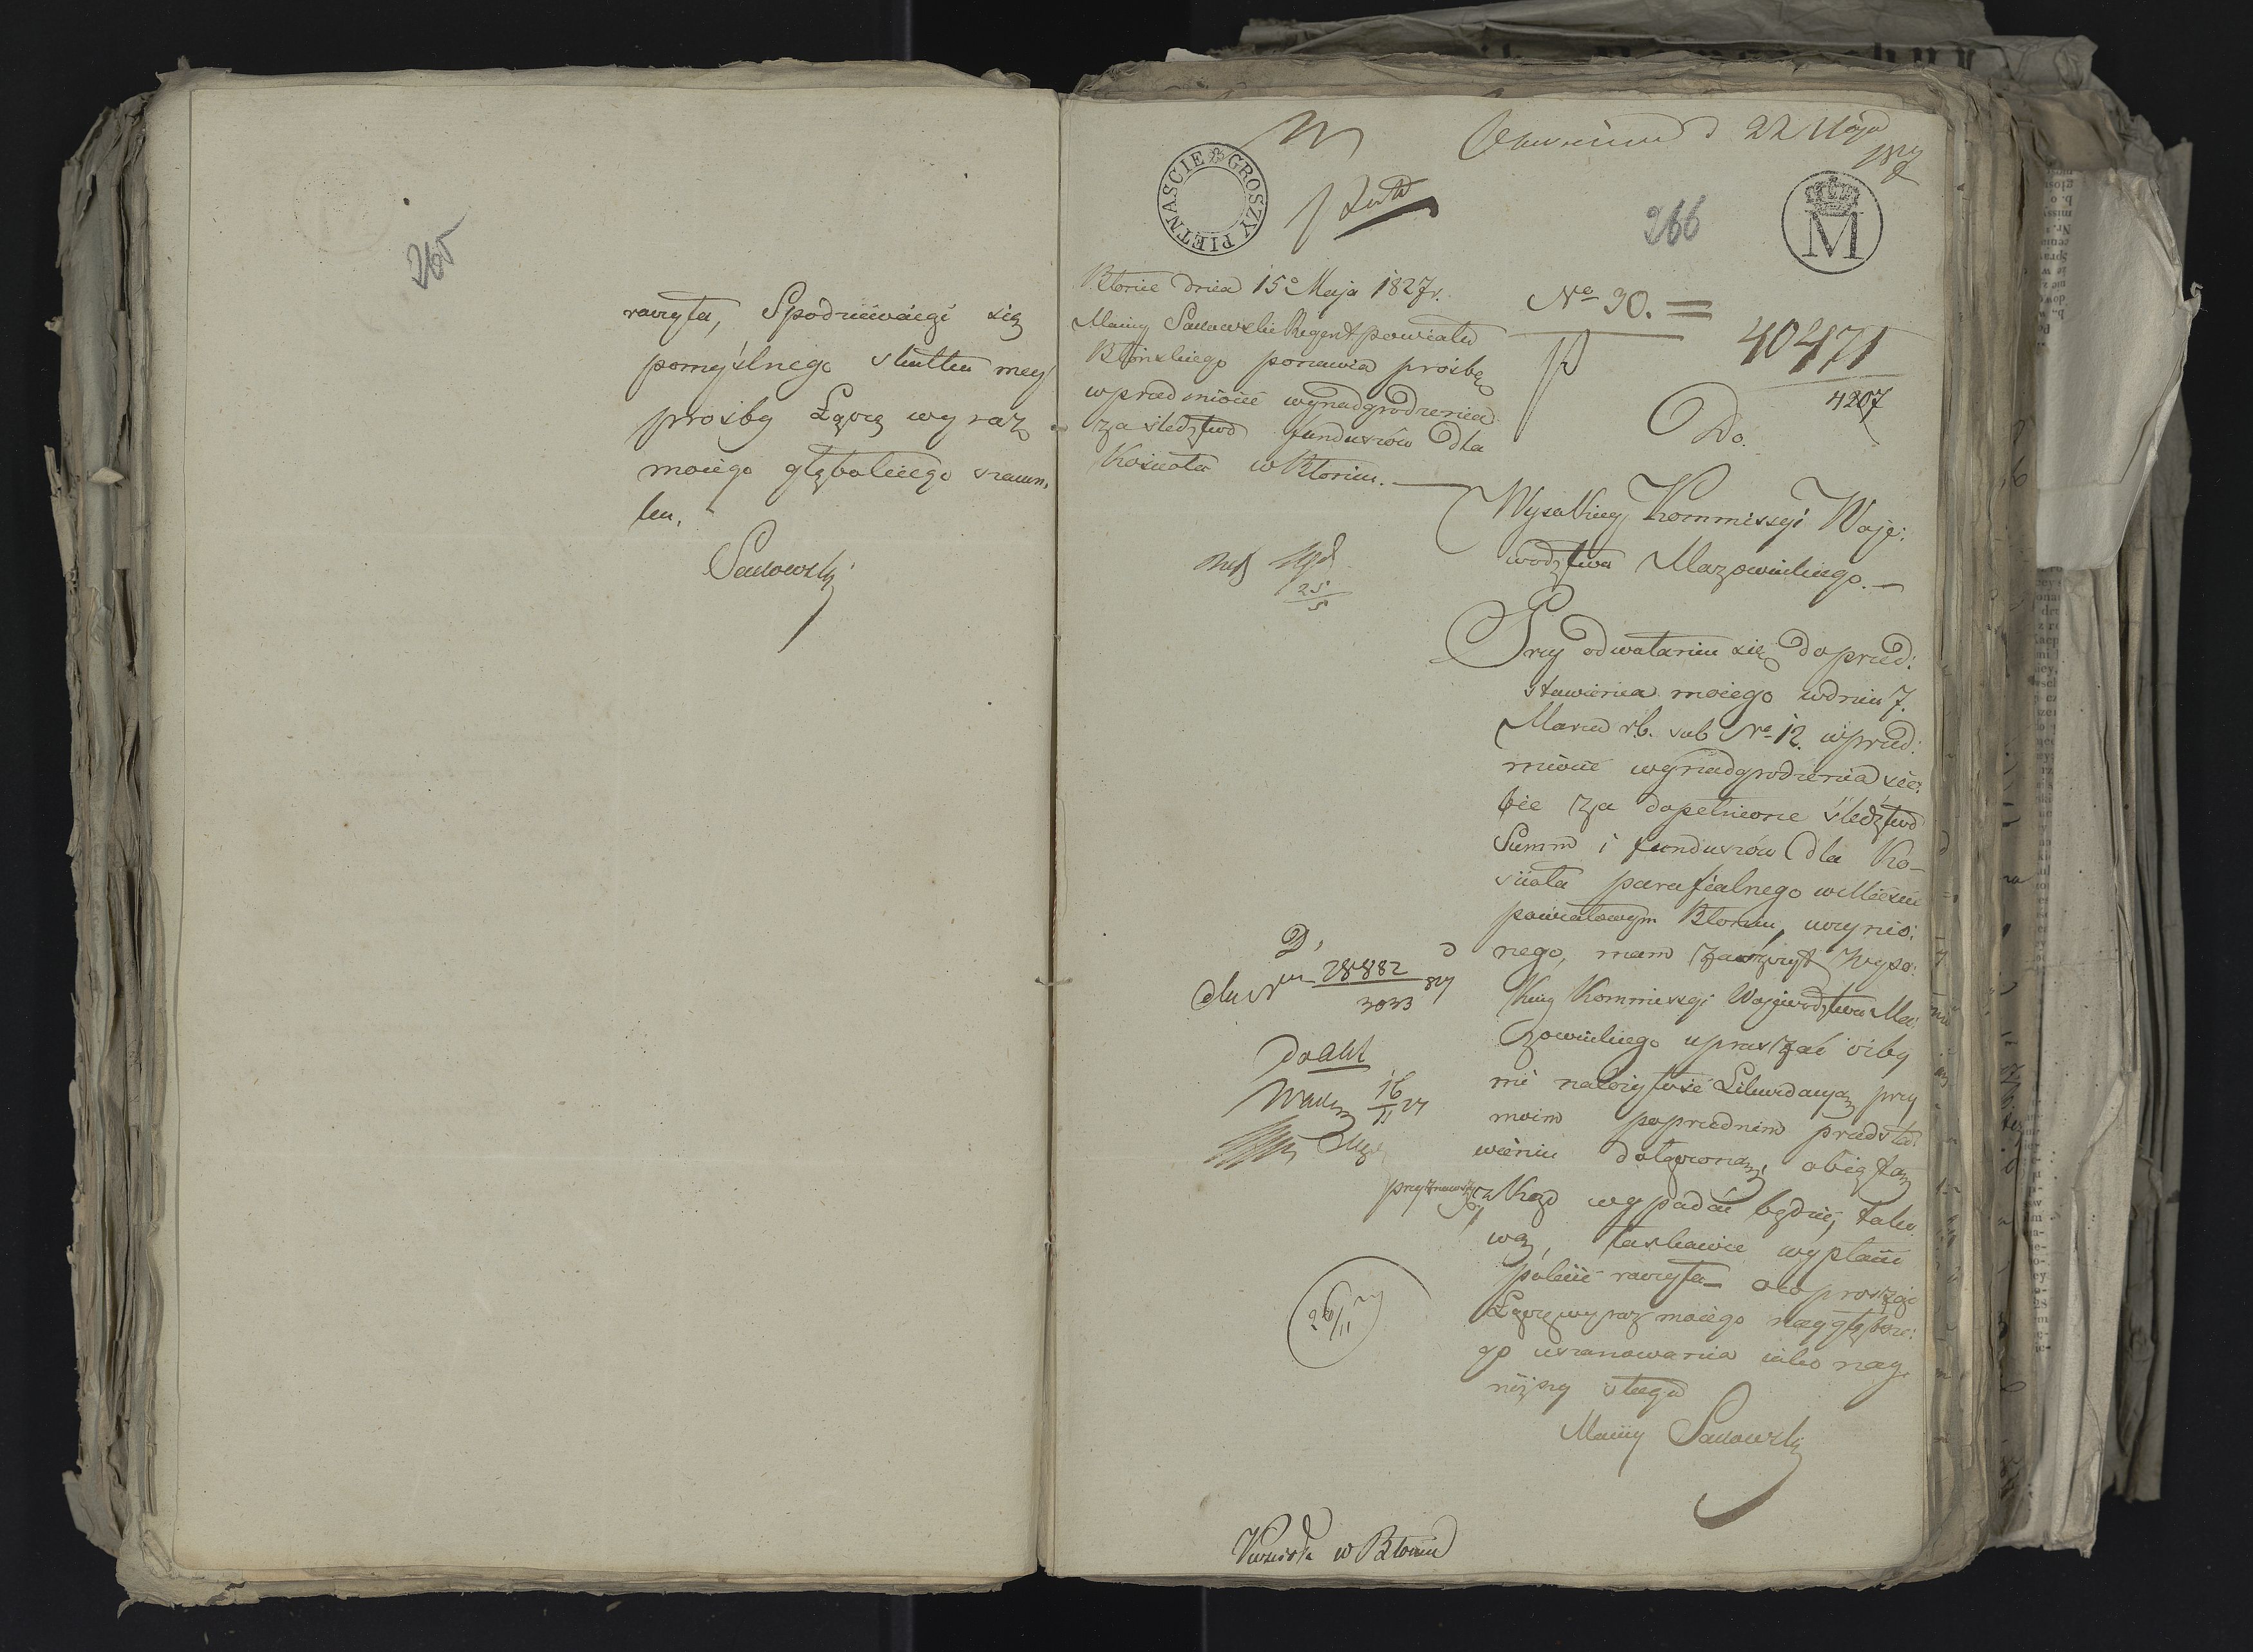 265
raczyła, Spodziewaięc się
pomyślnego skutku mey
prośby Łączę wyraz
moiego głębokiego szacun,
ku.
Sadowski
22 Maja
PIETNASCIE GROSZY
M
266
Błonie dnia 15º Maja 1827 r.
Maciey Sadowski Regent powiatu
Błońskiego ponawia prośbę
wprzedmiocie wynadgrodzenia
za śledztwo funduszów dla
Kościoła w Błoniu.
25/5
Nº 30.
40471
4207
Do.
Wysokiey Kommissyi Woje:
wodztwa Mazowieckiego.
Przy odwołaniu się do przed:
stawienia moiego wdniu 7.
Marca r.b. sub Nº 12. wprzed:
miocie wynadgrodzenia sie:
bie za dopełnione śledztwo
Summ i funduszów dla Ko-
ścioła parafialnego wMieście
powiatowym Błoniu, uczynio:
nego, mam zaszczyt Wyso:
kiey Kommissyi Wojewodztwa Ma:
zowieckiego upraszać ażeby
mi należytość Likwidacyą przy
moim poprzednim przedsta:
wieniu dołączoną, obiętą
iaka wypadać będzie, tako
wą, łaskawie wypłacić
polecić raczyła – oco prosząc
Łączę wyraz moiego naygłębsze:
go uszanowania iako nay
niższy sługa
Maciey Sadowski
28882
3033
827
do akt
16/11 27
26/11 27
w Błoniu